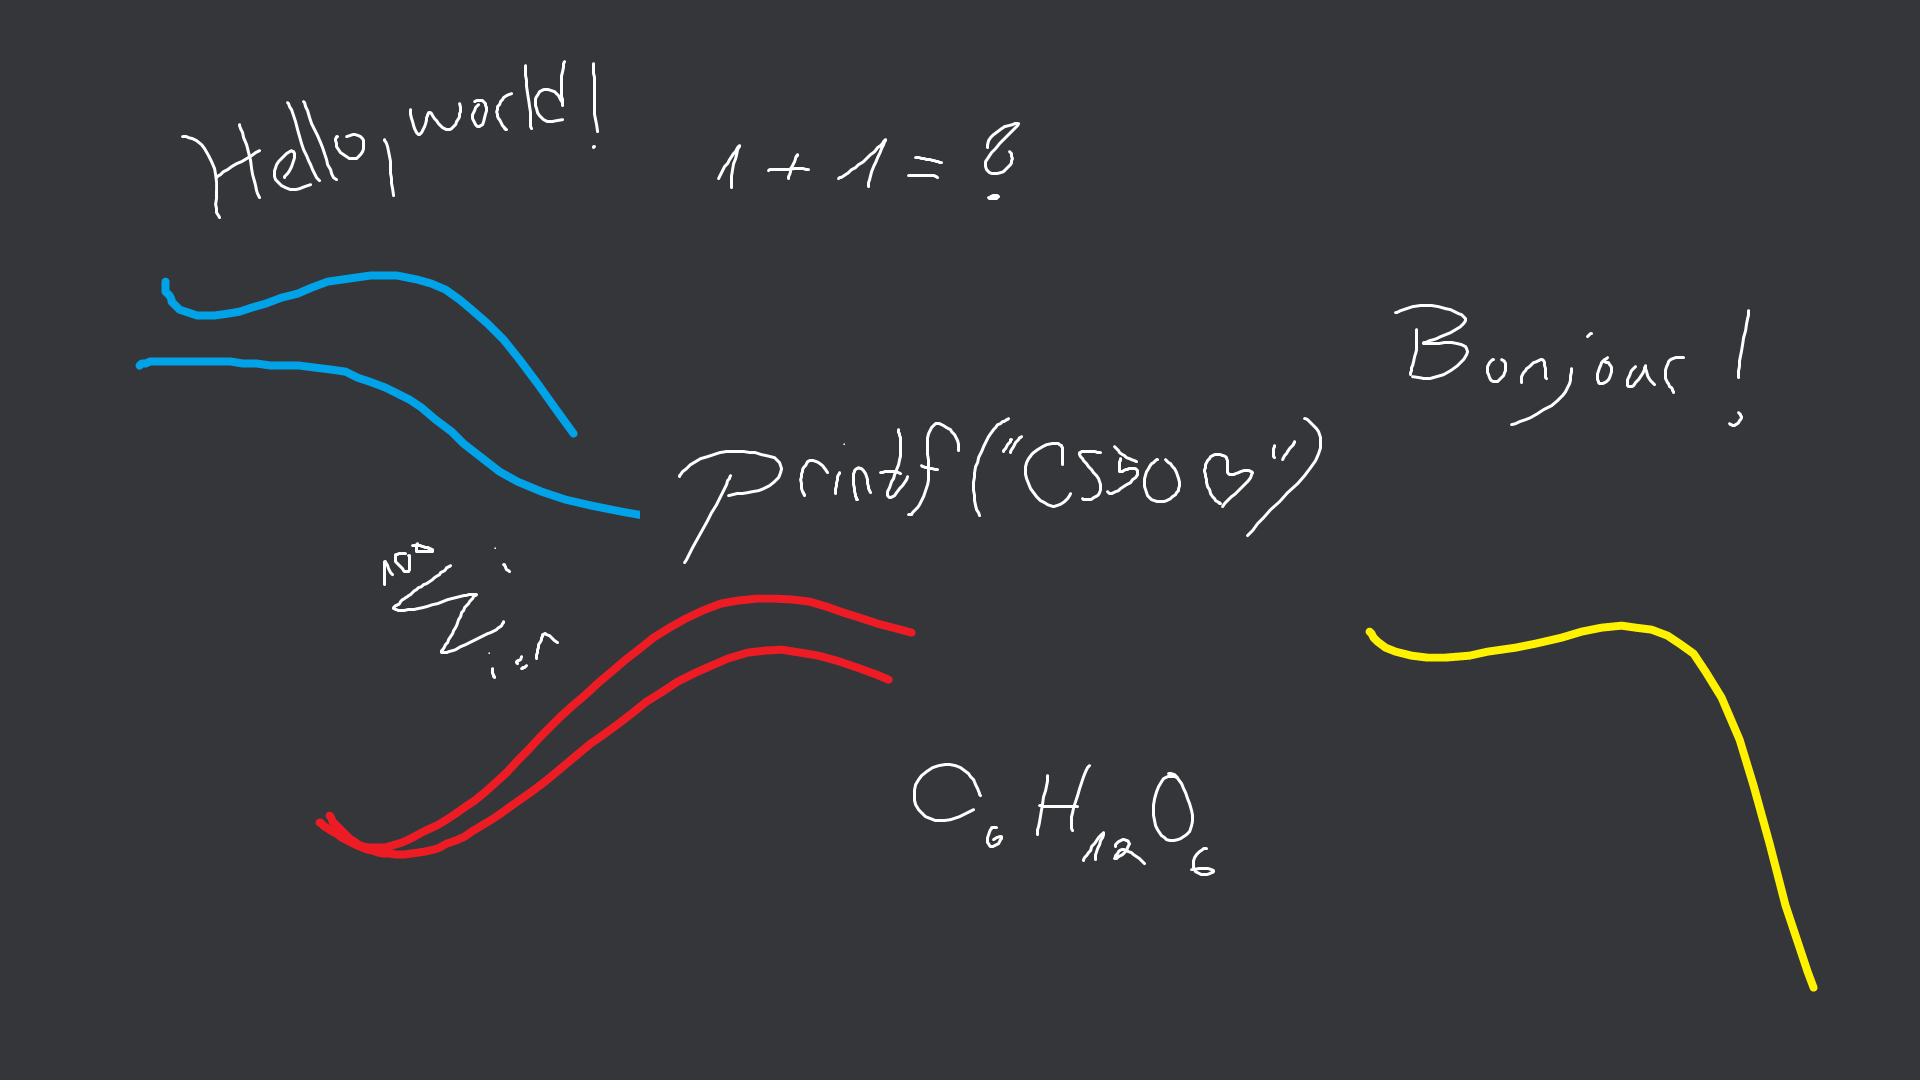 Hello, world!
1 + 1 = ?
Bonjour!
printf("CS50 ♡")
C₆H₁₂O₆